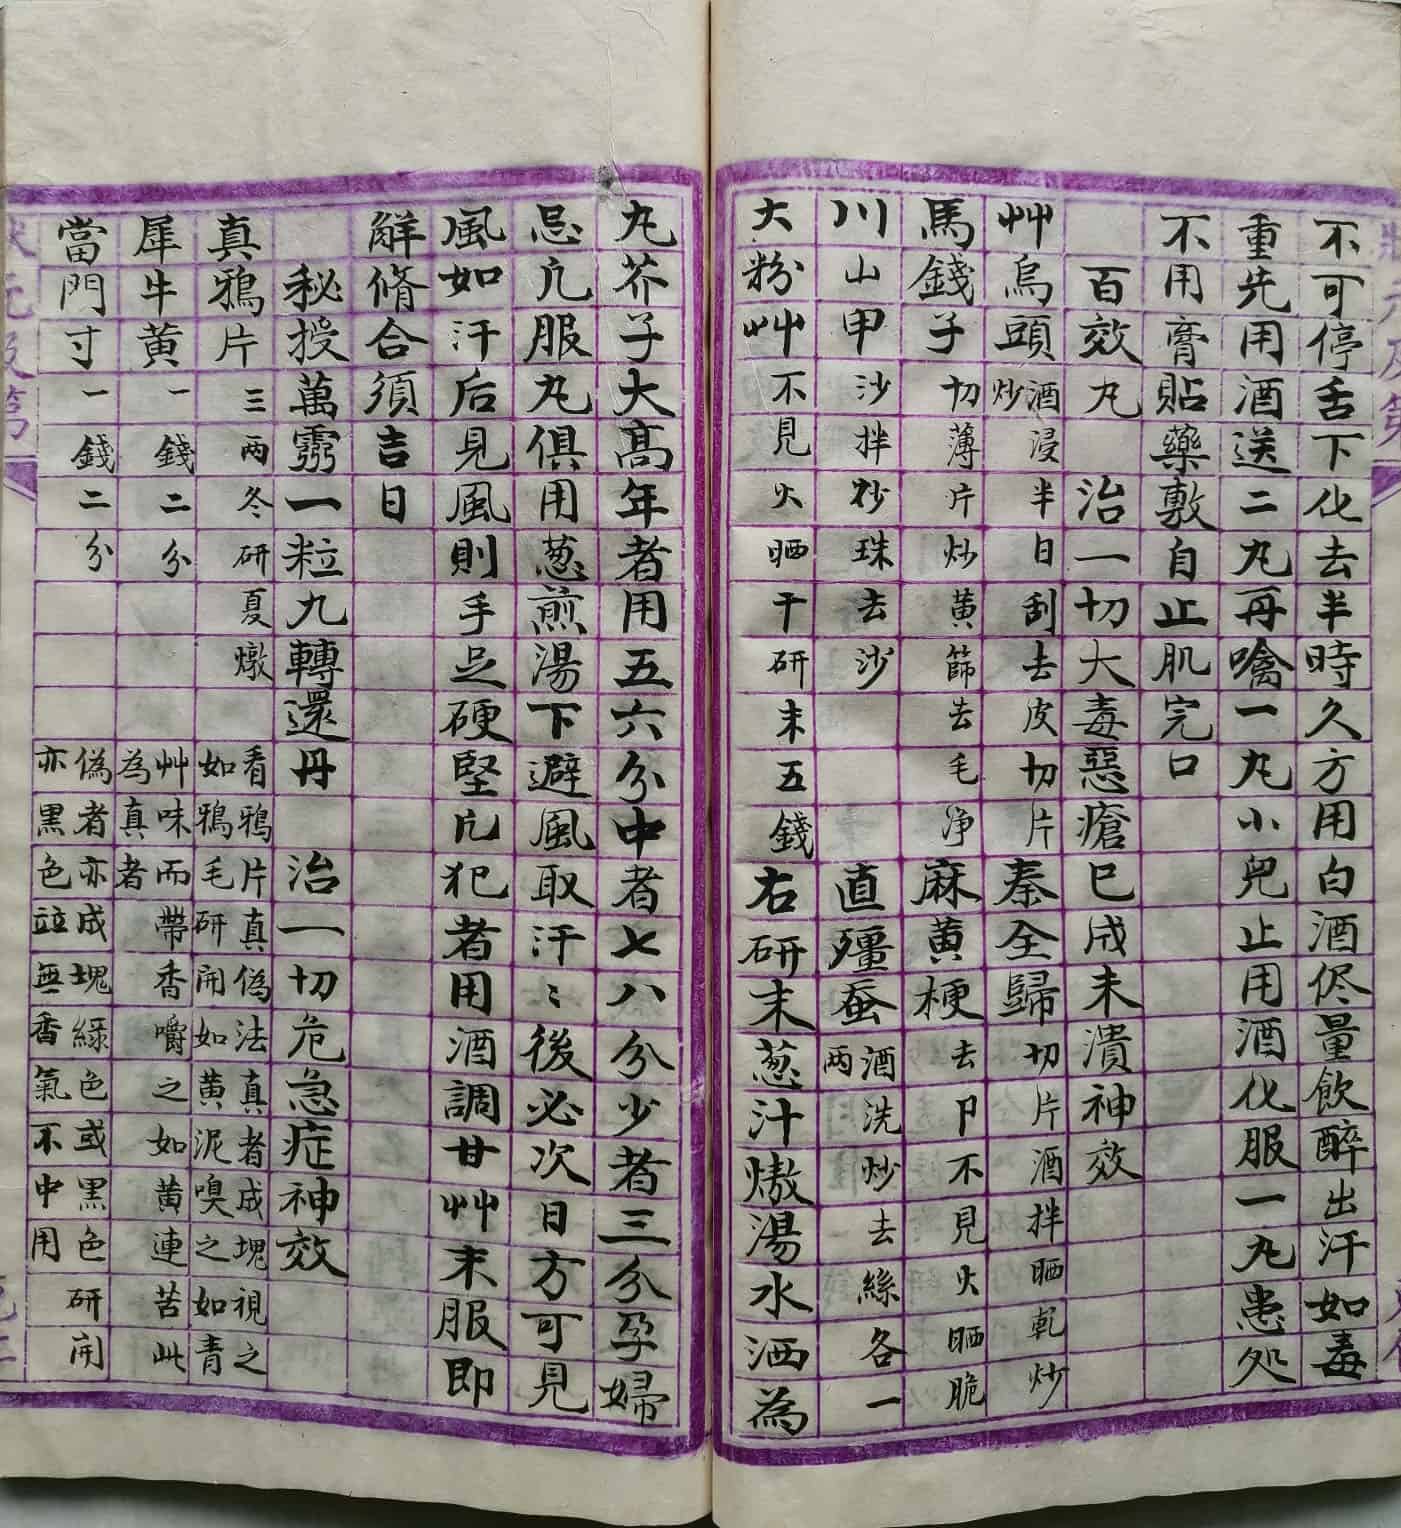 不可停舌下化去半時久方用白酒侭量飲醉出汗如毒
重先用酒送二丸再噙一丸小兒止用酒化服一丸患処
不用膏貼藥敷自止肌完口
百效丸 治一切大毒惡瘡已成未潰神效
艸烏頭 酒浸半日刮去皮切片炒 秦全歸 切片酒拌晒乾炒
馬錢子 切薄片炒黄篩去毛净 麻黄梗 去卩不見火晒脆
川山甲 沙拌炒珠去沙 直殭蚕 酒洗炒去絲各一两
大粉艸 不見火晒干研末五錢 右研末葱汁熬湯水洒為
丸芥子大高年者用五六分中者七八分少者三分孕婦
忌凢服丸俱用葱煎湯下避風取汗〻後必次日方可見
風如汗后見風則手足硬堅凢犯者用酒調甘艸末服即
觧脩合須吉日
秘授萬霛一粒九轉還丹 治一切危急症神效
真鴉片 三两冬研夏燉 看鴉片真偽法真者成塊視之如鴉毛研開如黄泥嗅之如青
犀牛黄 一錢二分 艸味而帶香嚼之如黄連苦此為真者
當門寸 一錢二分 偽者亦成塊緑色或黑色研開亦黑色竝無香氣不中用